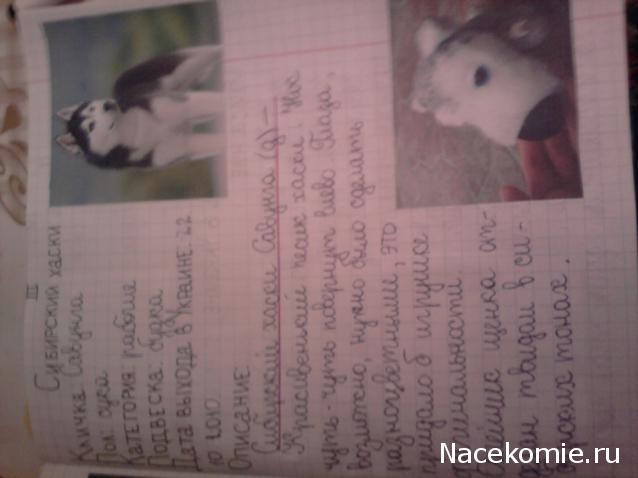 III
Сибирский хаски
Кличка: Савунга
Пол: сука
Категория: рабочие
Подвеска: будка
Дата выхода в Украине: 22
10 2010.
Описание:
Сибирский хаски Савунга (д) –
Красивенький песик хаски. Нос
чуть-чуть повернут влево. Глаза,
возможно, нужно было сделать
разноцветными, это
придало б игрушке
оригинальности.
щенка от-
в си-
тонах.
Nacekomie.ru